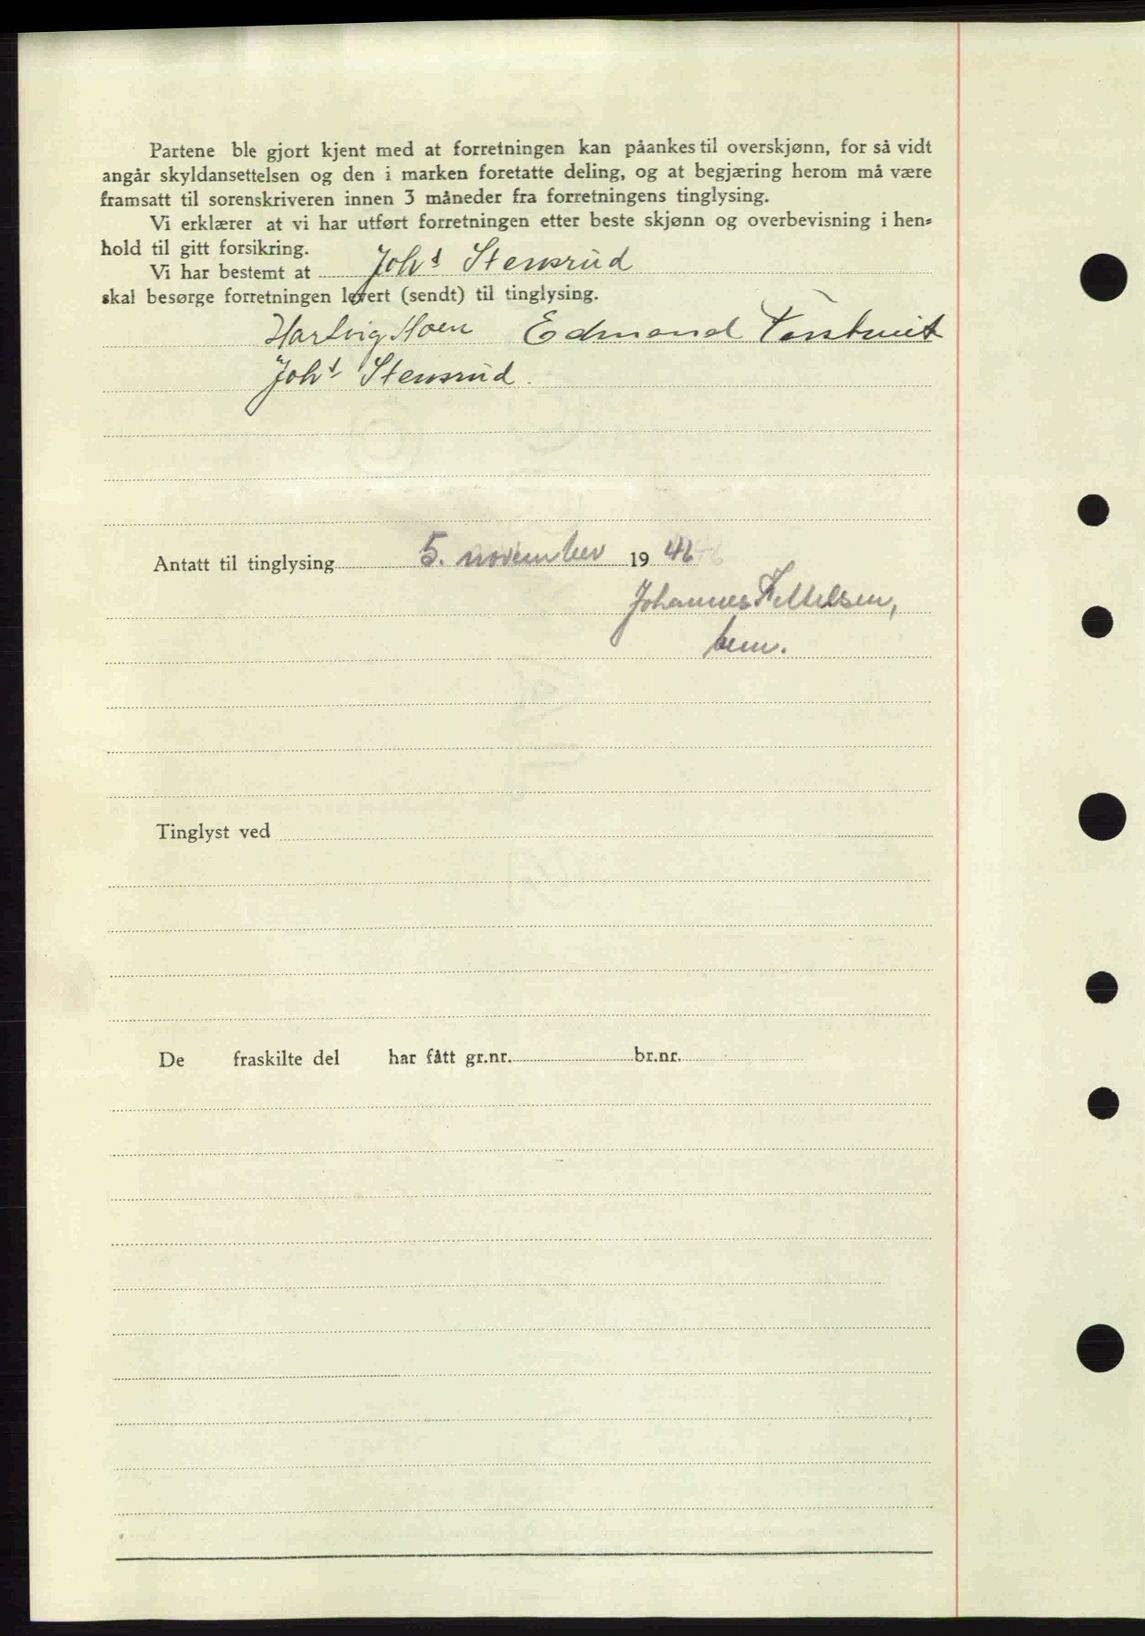 Partene ble gjort kjent med at forretningen kan påankes til overskjønn, for så vidt
angår skyldansettelsen og den i marken foretatte deling, og at begjæring herom må være
framsatt til sorenskriveren innen 3 måneder fra forretningens tinglysing.
Vi erklærer at vi har utført forretningen etter beste skjønn og overbevisning i hen-
hold til gitt forsikring.
Vi har bestemt at Johs Stensrud
skal besørge forretningen levert (sendt) til tinglysing.
Hartvig Moen Edmond
Johs Stensrud
Antatt til tinglysing 5. november 1946
Johannes
bem.
Tinglyst ved
De fraskilte del har fått gr.nr. br.nr.